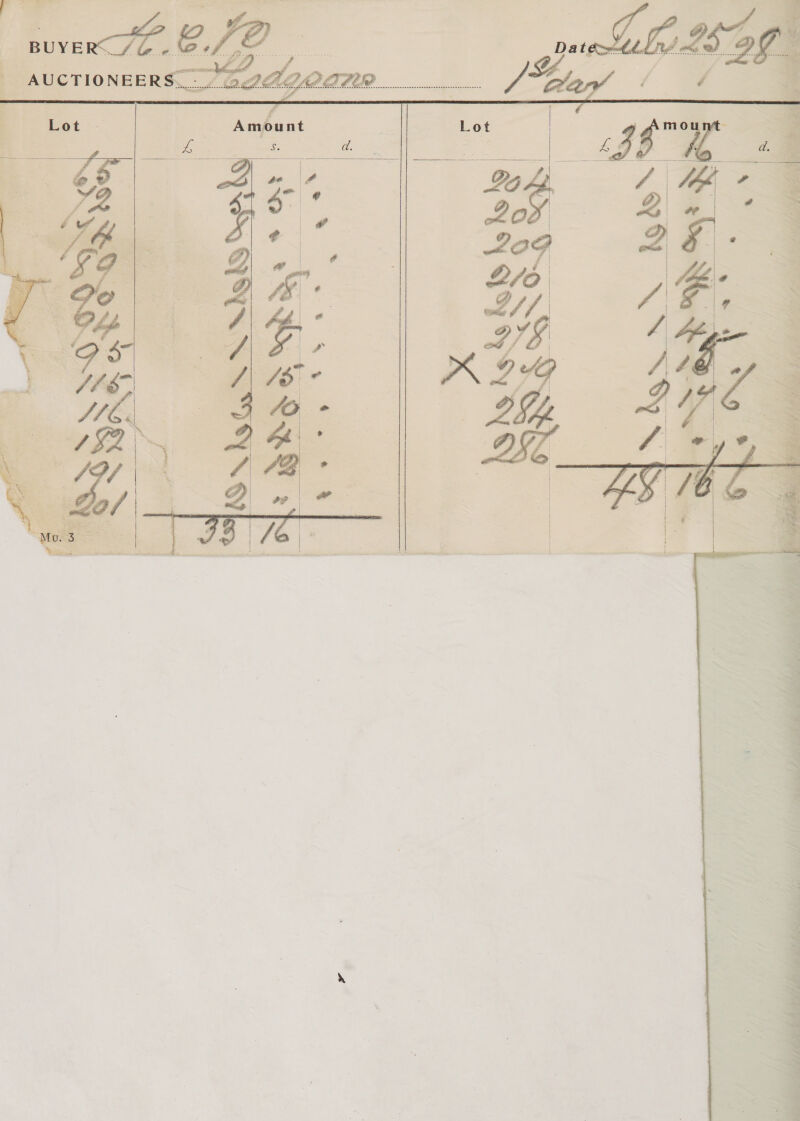 BUYER Date July 25/28
AUCTIONEERS Hodgsons 1st day
Lot Amount Lot Amount
£ s. d. £ s. d.
33 16
65 2 " "
72 5 5 "
74 8 " "
89 2 " "
90 2 18 "
94 1 4 "
95 1 8 "
115 1 15 "
116 3 10 "
182 2 4 "
191 1 12 "
201 2 " "
33 16
Mo. 3
204 1 14 "
208 2 " "
209 2 8 "
210 14 "
211 1 8 "
278 1 4
X 279 1
284 2 17 6
286 1 " "
48 16 6